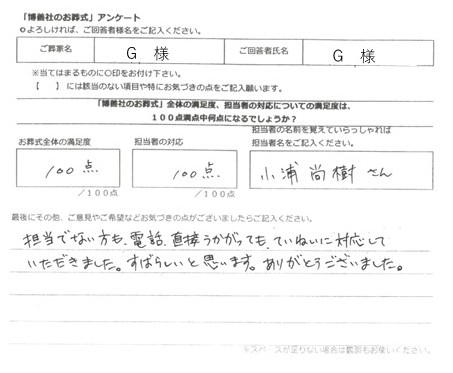 「博善社のお葬式」アンケート
○よろしければ、ご回答者様名をご記入ください。
ご葬家名 G 様 ご回答者氏名 G 様
※当てはまるものに○印をお付け下さい。
【 】には該当のない項目や特にお気づきの点をご記入願います。
「博善社のお葬式」全体の満足度、担当者の対応についての満足度は、
100点満点中何点になるでしょうか?
担当者の名前を覚えていらっしゃれば
お葬式全体の満足度 担当者の対応 担当者名をご記入ください。
100点 100点 小浦 尚樹 さん
/100点 /100点
最後にその他、ご意見やご希望などお気づきの点がございましたらご記入ください。
担当でない方も、電話、直接うかがっても、ていねいに対応して
いただきました。すばらしいと思います。ありがとうございました。
※スペースが足りない場合は裏面もお使いください。